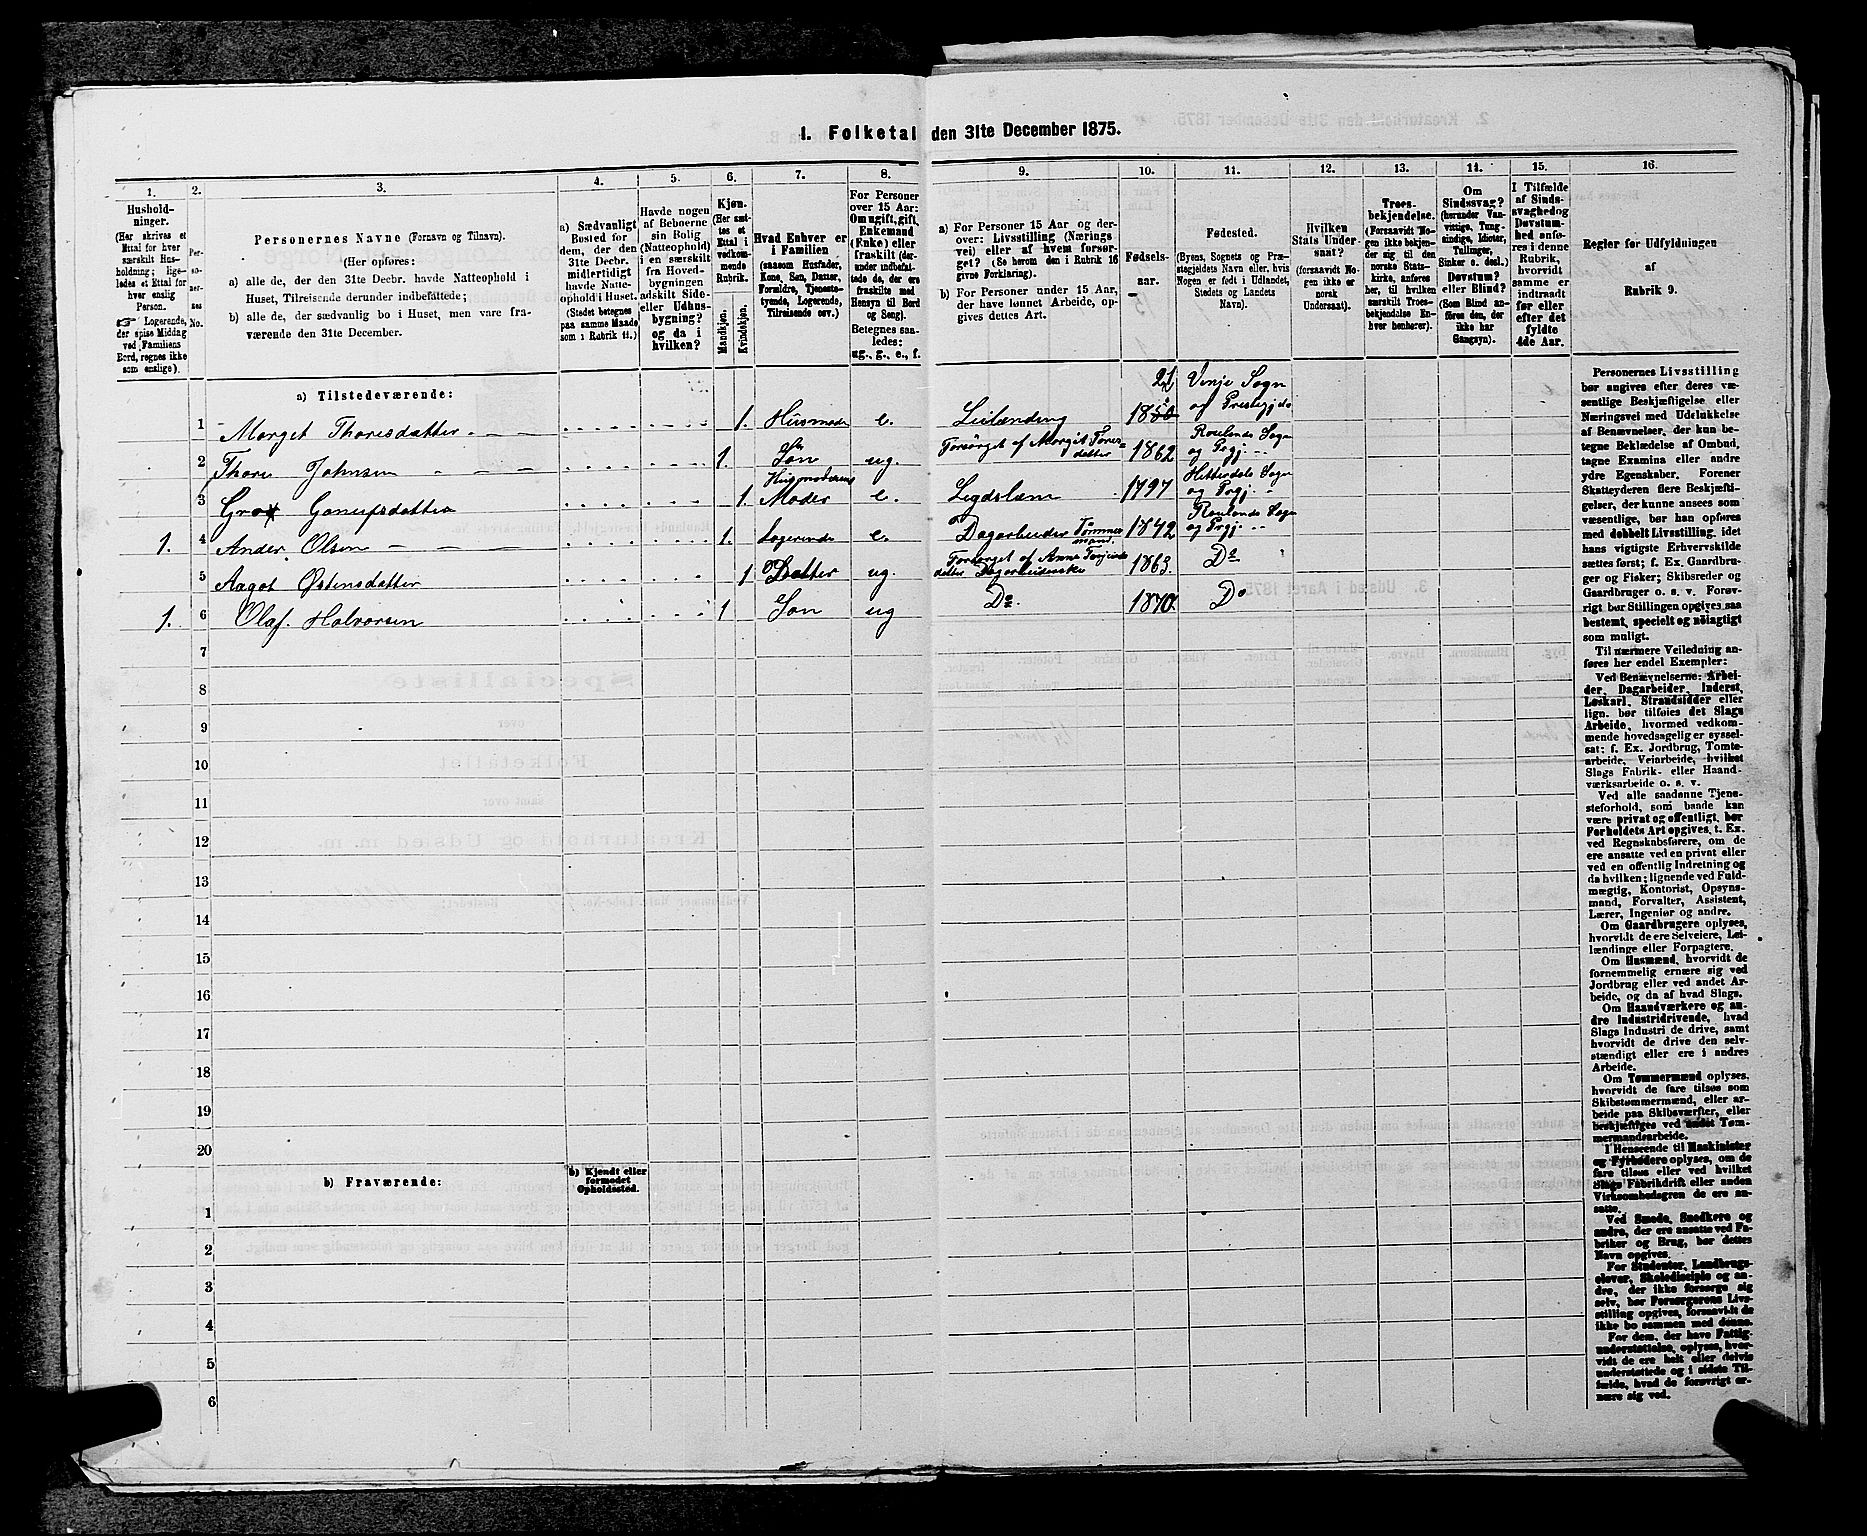 1. Folketal den 31te December 1875.
1.
2.
3.
4.
5.
6.
7.
8.
9.
10.
11.
12.
13.
14.
15.
16.
Hushold-
ninger.
(Her skrives et
Ettal for hver
særskilt Hus-
holdning; lige-
ledes et Ettal for
hver enslig
Person.
☞ Logerende,
der spise Middag
ved Familiens
Bord, regnes ikke
som enslige).
Per-
so-
ner-
nes
No.
Personernes Navne (Fornavn og Tilnavn).
(Her opføres:
a) alle de, der den 31te Decbr. havde Natteophold i
Huset, Tilreisende derunder indbefattede;
b) alle de, der sædvanlig bo i Huset, men vare fra-
værende den 31te December.
a) Sædvanligt
Bosted for
dem, der den
31te Decbr.
midlertidigt
havde Natte-
ophold i Huset.
(Stedet betegnes
paa samme Maade
som i Rubrik 11.)
Havde nogen
af Beboerne
sin Bolig
(Natteophold)
i en særskilt
fra Hoved-
bygningen
adskilt Side-
eller Udhus-
bygning?
og da i
hvilken?
Kjøn.
(Her sæt-
tes et
Ettal i
vedkom-
mende
Rubrik.
Mandkjøn.
Kvindekjøn.
Hvad Enhver er
i Familien
(saasom Husfader,
Kone, Søn, Datter,
Forældre, Tjeneste-
tyende, Logerende,
Tilreisende osv.)
For Personer
over 15 Aar:
Om ugift, gift,
Enkemand
(Enke) eller
fraskilt (der-
under indbefat-
tede de, der ere
fraskilte med
Hensyn til Bord
og Seng).
Betegnes saa-
ledes:
ug., g., e., f.
a) For Personer 15 Aar og der-
over: Livsstilling (Nærings-
vei) eller af hvem forsør-
get? (Se herom den i Rubrik 16
givne Forklaring).
b) For Personer under 15 Aar,
der have lønnet Arbeide, op-
gives dettes Art.
Fødsels-
aar.
Fødested.
(Byens, Sognets og Præ-
stegjeldets Navn eller, hvis
Nogen er født i Udlandet,
Stedets og Landets
Navn).
Hvilken
Stats Under-
saat?
(forsaavidt No-
gen ikke er
norsk
Undersaat).
Troes-
bekjendelse.
(Forsaavidt No-
gen ikke bekjen-
der sig til den
norske Stats-
kirke, anføres
her, til hvilken
særskilt Troes-
bekjendelse En-
hver henhører).
Om
Sindssvag?
(herunder Van-
vittige, Tung-
sindige, Idioter,
Tullinger,
Sinker o. desl.)
Døvstum?
eller Blind?
(Som Blind an-
føres den, der
ikke har
Gangsyn).
I Tilfælde
af Sinds-
svaghed og
Døvstum-
hed anfø-
res i denne
Rubrik,
hvorvidt
samme er
indtraadt
før eller
efter det
fyldte
4de Aar.
Regler for Udfyldningen
af
Rubrik 9.
a) Tilstedeværende:
1 Morget Thoresdatter 1. Husmoder e. Leilænding 1850 Venje Sogn
og Prestegjeld
2 Thore Johnsen 1. Søn ug. Forsørget af Margit Tores-
datter 1862 Raulands Sogn
og Prgj.
3 Gro 1. Husmoderens
Moder e. Legdslæm 1797 Hitterdals Sogn
og Prgj.
1. 4 Ander Olsen 1. Logerende e. Dagarbeider Tømmer-
mand. 1842 Raulands Sogn
og Prgj.
5 Aagot Østensdatter 1 Datter ug. Forsørget af Anne
datter Dagarbeiderske 1863. Do
1. 6 Olaf Halvorsen 1 Søn ug Do. 1870. Do
7
8
9
10
11
12
13
14
15
16
17
18
19
20
b) Fraværende:
b) Kjendt eller
formodet
Opholdssted.
1
2
3
4
5
6
Personernes Livsstilling
bør angives efter deres væ-
sentlige Beskjæftigelse eller
Næringsvei med Udelukkelse
af Benævnelser, der kun be-
tegne Beklædelse af Ombud,
tagne Examina eller andre
ydre Egenskaber. Forener
Skatteyderen flere Beskjæfti-
gelser, der kunne ansees som
væsentlige, bør han opføres
med dobbelt Livsstilling, idet
hans vigtigste Erhvervskilde
sættes først; f. Ex. Gaardbru-
ger og Fisker; Skibsreder og
Gaardbruger o. s. v. Forøv-
rigt bør Stillingen opgives saa
bestemt, specielt og nøiagtigt
som muligt.
Til nærmere Veiledning an-
føres her endel Exempler:
Ved Benævnelserne: Arbei-
der, Dagarbeider, Inderst,
Løskarl, Strandsidder eller
lign. bør tilføies det Slags
Arbeide, hvormed vedkom-
mende hovedsagelig er syssel-
sat; f. Ex. Jordbrug, Tomte-
arbeide, Veiarbeide, hvilket
Slags Fabrik- eller Haand-
værksarbeide o. s. v.
Ved alle saadanne Tjene-
steforhold, som baade kan
være privat og offentligt, bør
Forholdets Art opgives, t. Ex.
ved Regnskabsførere, om de
ere ansatte ved en privat eller
ved en offentlig Indretning og
da hvilken; lignende ved Fuld-
mægtig, Kontorist, Opsyns-
mand, Forvalter, Assistent,
Lærer, Ingeniør og andre.
Om Gaardbrugere oplyses,
hvorvidt de ere Selveiere, Lei-
lændinge eller Forpagtere.
Om Husmænd, hvorvidt de
fornemmelig ernære sig ved
Jordbrug eller ved andet Ar-
beide, og da af hvad Slags.
Om Haandværkere og an-
dre Industridrivende, hvad
Slags Industri de drive, samt
hvorvidt de drive den selv-
stændigt eller ere i andres
Arbeide.
Om Tømmermænd oplyses,
hvorvidt de fare tilsøs som
Skibstømmermænd, eller ar-
beide paa Skibsværfter, eller
beskjæftiges ved andet Tøm-
mermandsarbeide.
I Henseende til Maskinister
og Fyrbødere oplyses, om de
fare tilsøs eller ved hvilket
Slags Fabrikdrift eller anden
Virksomhedsgren de ere an-
satte.
Ved Smede, Snedkere og
andre, der ere ansatte ved Fa-
briker og Brug, bør dettes
Navn opgives.
For Studenter, Landbrugs-
elever, Skoledisciple og an-
dre, der ikke forsørge sig
selv, bør Forsørgerens Livs-
stilling opgives, forsaavidt de
ikke bo sammen med denne.
For dem, der have Fattig-
understøttelse, oplyses, hvor-
vidt de ere helt eller delvis
understøttede og i sidste Til-
fælde, hvad de forøvrigt er-
nære sig ved.